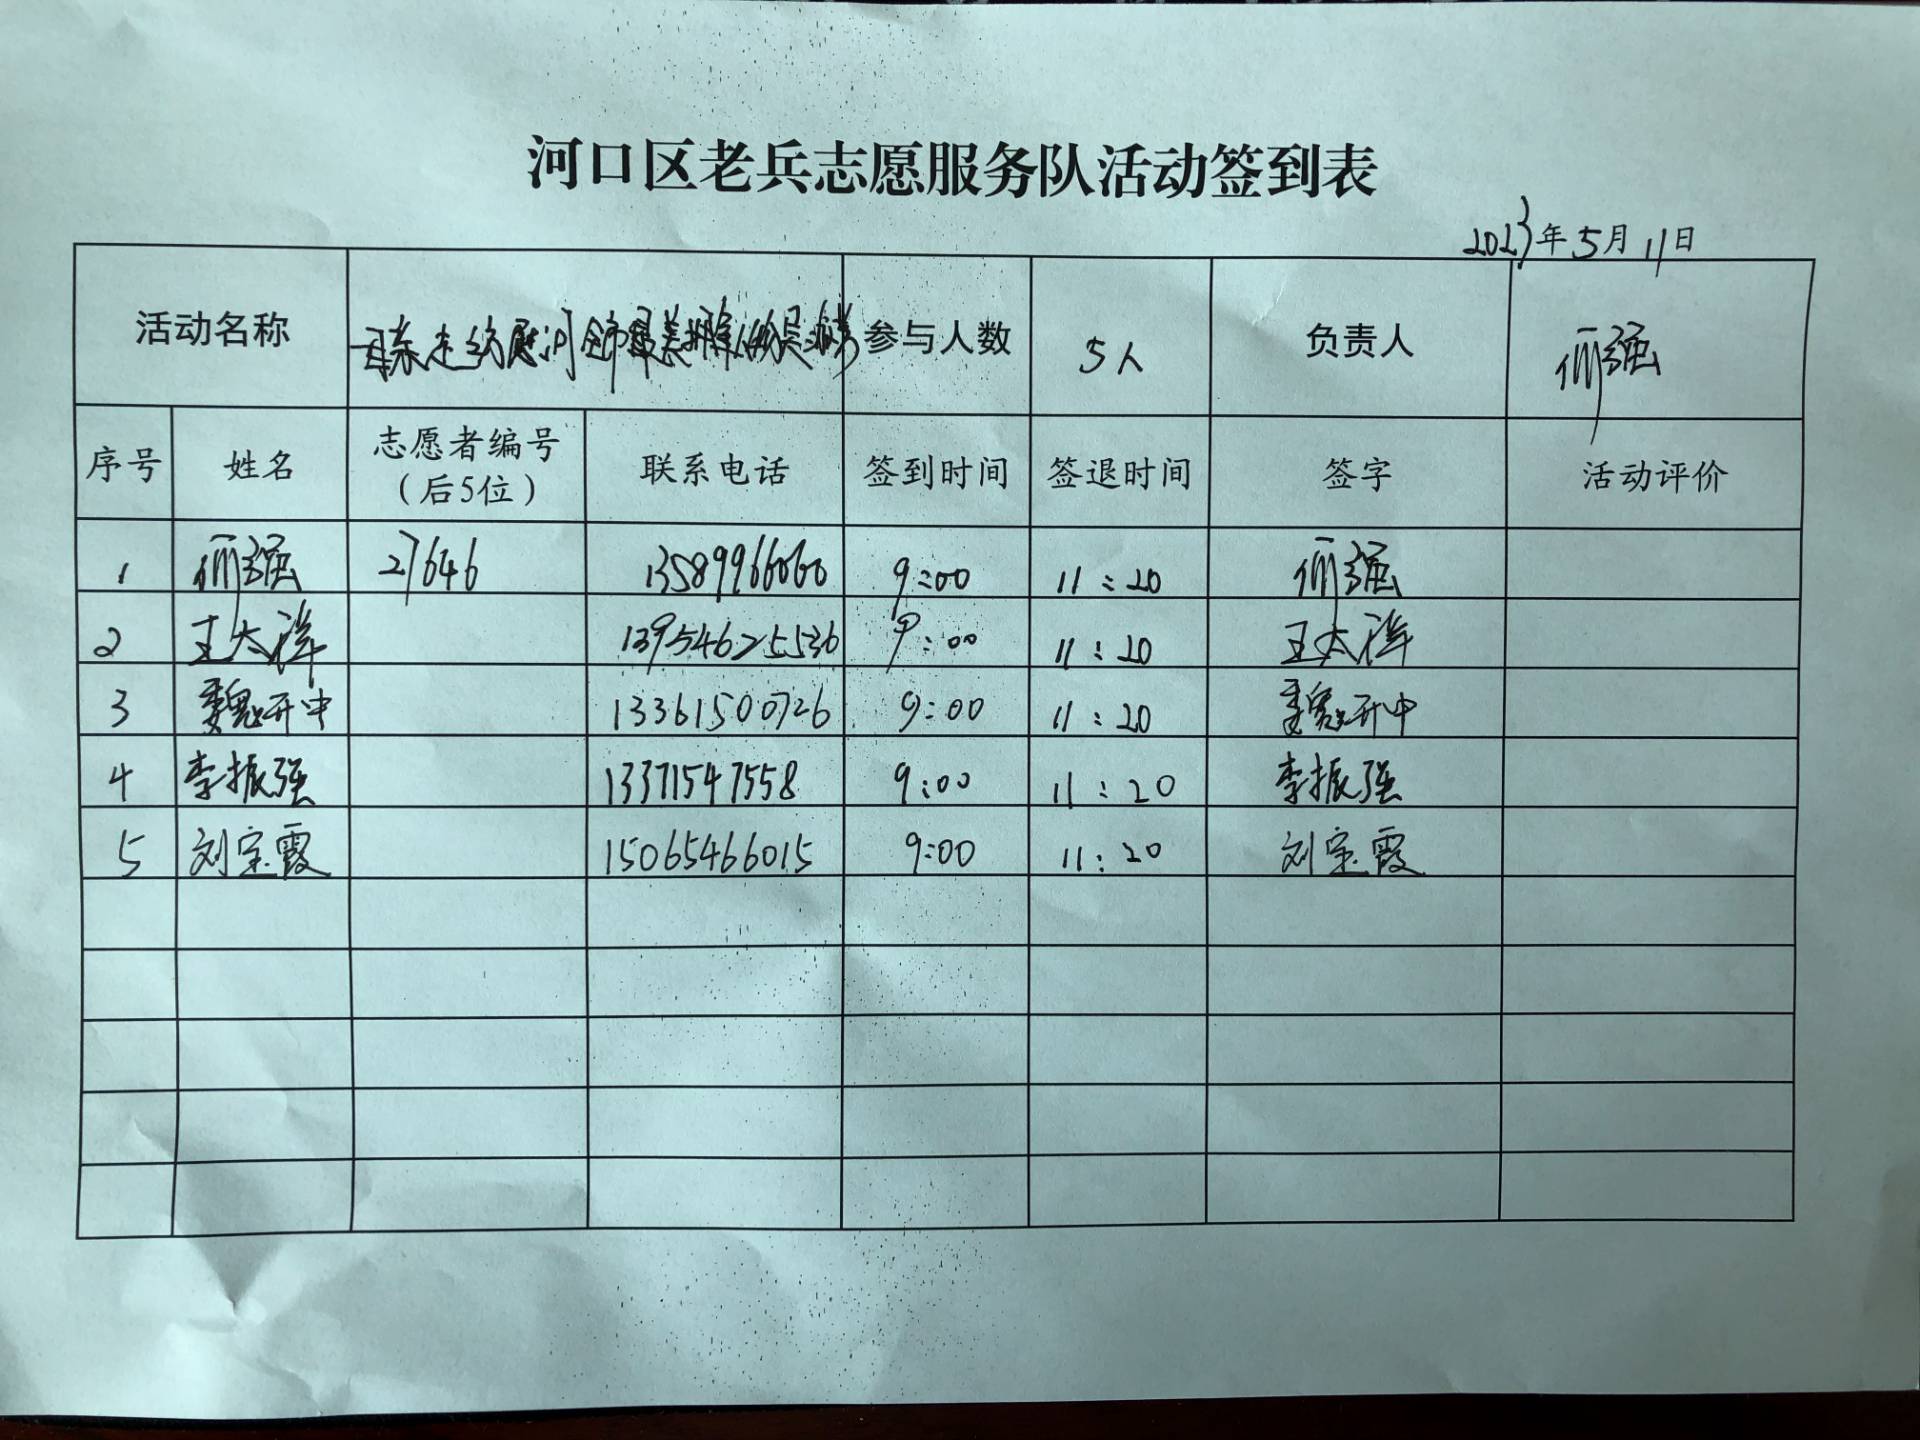 河口区老兵志愿服务队活动签到表
2023年5月11日
活动名称 参与人数 5人 负责人
序号 姓名 志愿者编号（后5位） 联系电话 签到时间 签退时间 签字 活动评价
1 27646 13589966060 9:00 11:20
2 王大洋 13954625536 9:00 11:20 王大洋
3 魏开中 13361500726 9:00 11:20 魏开中
4 李振强 13371547558 9:00 11:20 李振强
5 刘宝霞 15065466015 9:00 11:20 刘宝霞